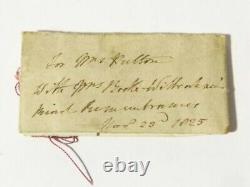 For Mrs Hutton
With Mrs Brooke Withers
kind Remembrances
Nov 23d 1825